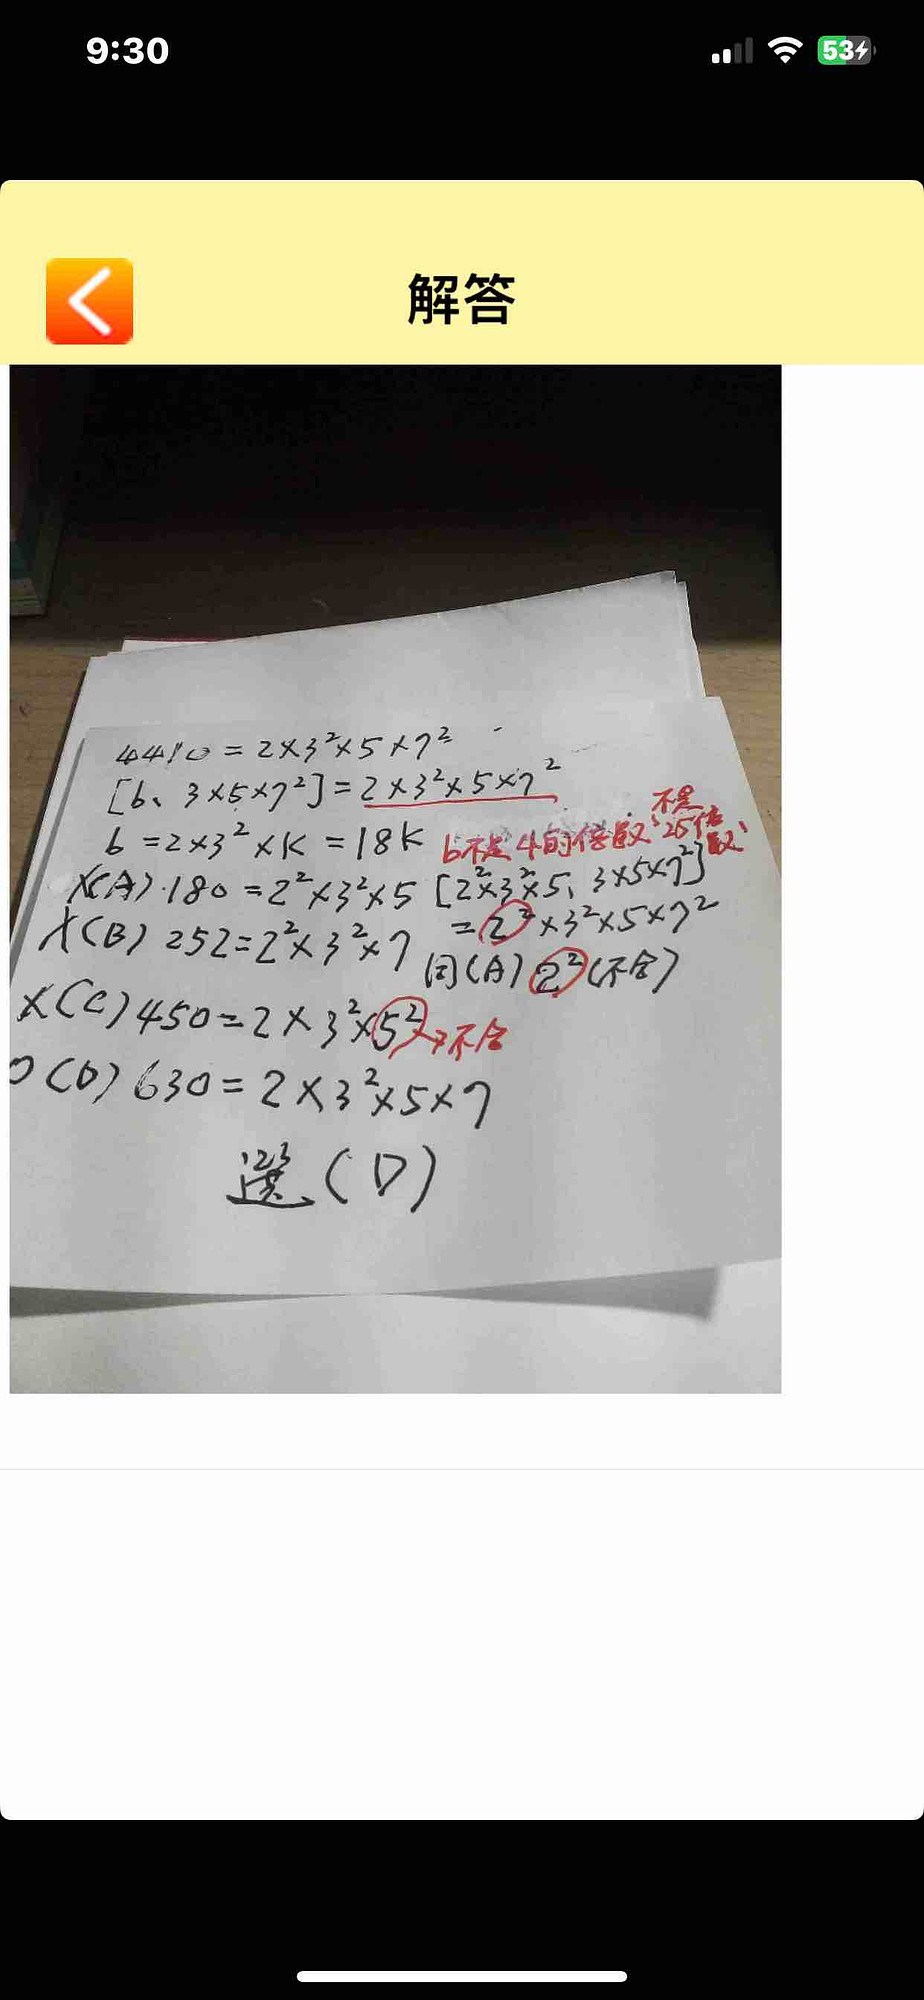 9:30
53
解答
4410 = 2×3²×5×7²
[b、3×5×7²] = 2×3²×5×7²
b = 2×3²×K = 18K b不是4的倍數、不是25倍數、
X(A).180 = 2²×3²×5 [2²×3²×5、3×5×7²]
= 2²×3²×5×7²
X(B) 252 = 2²×3²×7 同(A) 2² (不合)
X(C) 450 = 2×3²×5² → 不合
O(D) 630 = 2×3²×5×7
選(D)